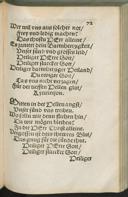 72
Wer wil vns aus solcher not/
frey vnd ledig machen:
Das thustu HErr alleine/
Es jamert dein Barmhertzigkeit/
Vnser sünd vnd grosses leid/
Heiliger HErre Gott/
Heiliger starcker Gott/
Heiliger barmhertziger Heiland/
Du ewiger Gott/
Las vns nicht verzagen/
Für der tieffen Hellen glut/
Kyrieleison.
Mitten in der Hellen angst/
Vnser sünd vns treiben/
Wo sollen wir denn fliehen hin/
Da wir mögen bleiben:
Zu dir HErr Christ alleine.
Vergossen ist dein thewres Blut/
Das gnug für die sünde thut/
Heiliger HErre Gott/
Heiliger starcker Gott/
Heiliger